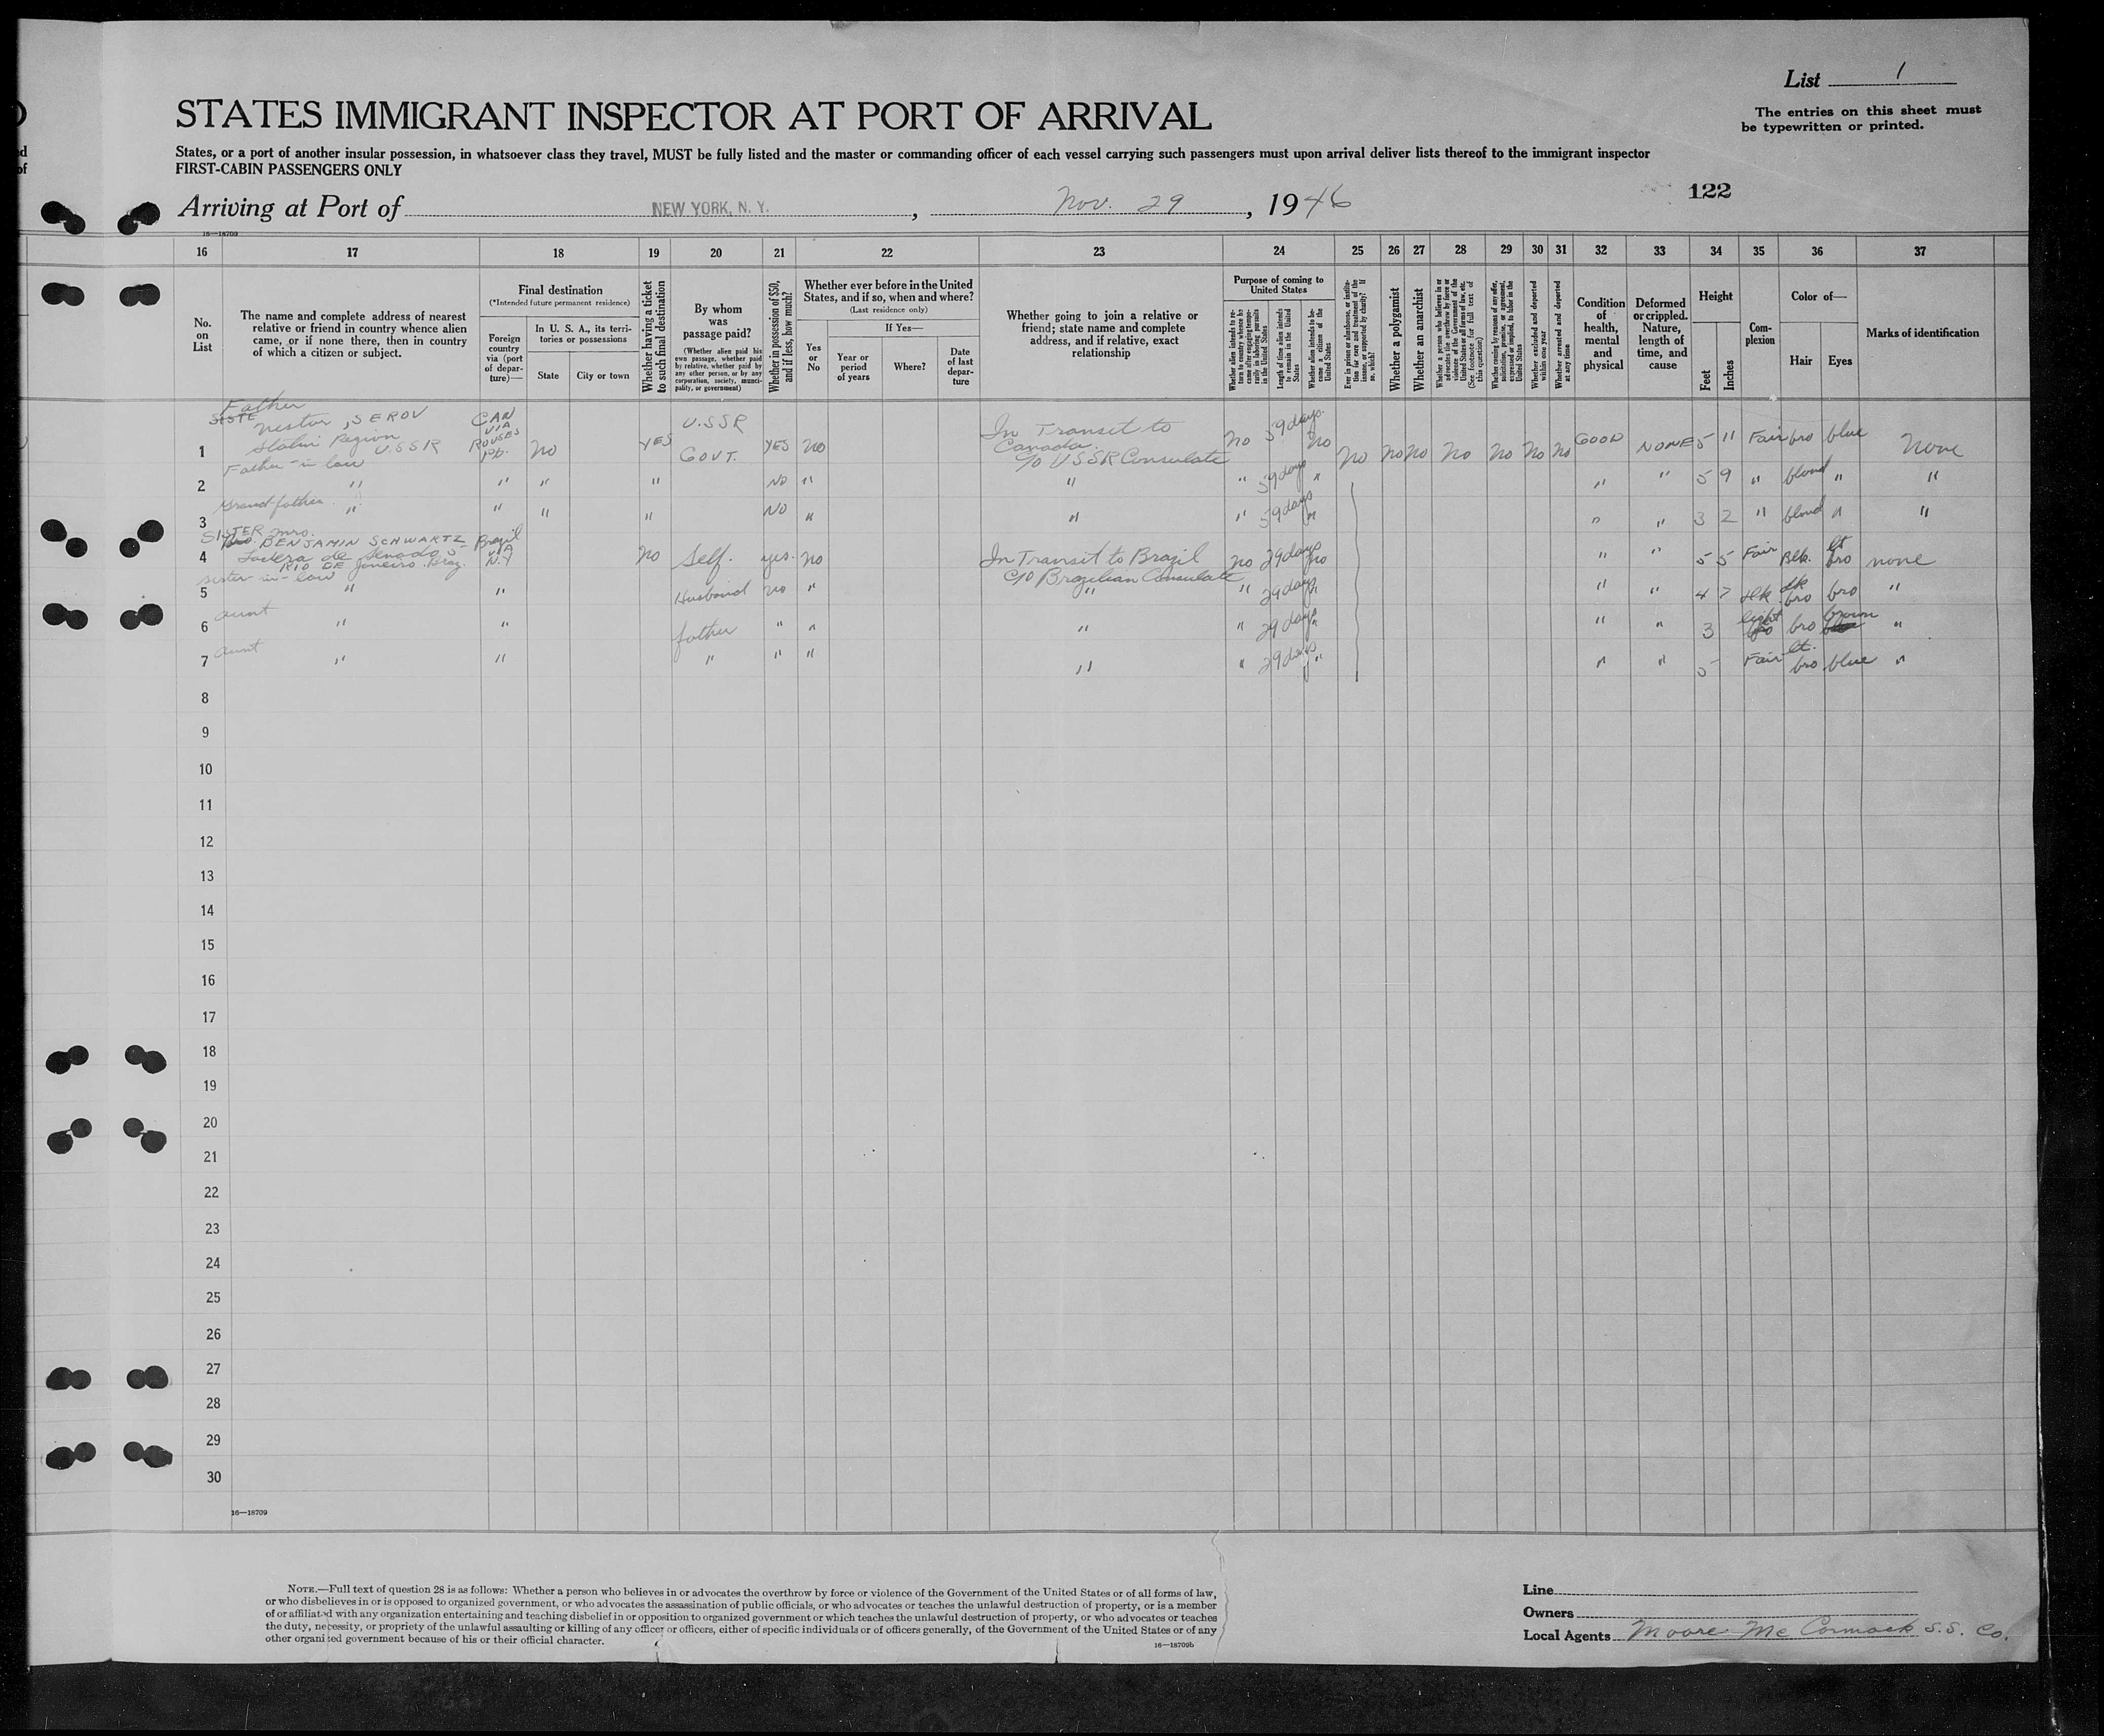 List 1
The entries on this sheet must
be typewritten or printed.
STATES IMMIGRANT INSPECTOR AT PORT OF ARRIVAL
States, or a port of another insular possession, in whatsoever class they travel, MUST be fully listed and the master or commanding officer of each vessel carrying such passengers must upon arrival deliver lists thereof to the immigrant inspector
FIRST-CABIN PASSENGERS ONLY
122
Arriving at Port of NEW YORK, N. Y., Nov. 29, 1946
16—18709
16 17 18 19 20 21 22 23 24 25 26 27 28 29 30 31 32 33 34 35 36 37
No. on List
The name and complete address of nearest relative or friend in country whence alien came, or if none there, then in country of which a citizen or subject.
Final destination
(*Intended future permanent residence)
Foreign country via (port of departure)—
In U. S. A., its territories or possessions
State
City or town
Whether having a ticket to such final destination
By whom was passage paid?
(Whether alien paid his own passage, whether paid by relative, whether paid by any other person, or by any corporation, society, municipality, or government)
Whether in possession of $50, and if less, how much?
Whether ever before in the United States, and if so, when and where?
(Last residence only)
Yes or No
If Yes—
Year or period of years
Where?
Date of last departure
Whether going to join a relative or friend; state name and complete address, and if relative, exact relationship
Purpose of coming to United States
Whether alien intends to return to country whence he came after engaging temporarily in laboring pursuits in the United States
Length of time alien intends to remain in the United States
Whether alien intends to become a citizen of the United States
Ever in prison or almshouse, or institution for care and treatment of the insane, or supported by charity? If so, which?
Whether a polygamist
Whether an anarchist
Whether a person who believes in or advocates the overthrow by force or violence of the Government of the United States or all forms of law, etc. (See footnote for full text of this question)
Whether coming by reasons of any offer, solicitation, promise, or agreement, expressed or implied, to labor in the United States
Whether excluded and deported within one year
Whether arrested and deported at any time
Condition of health, mental and physical
Deformed or crippled. Nature, length of time, and cause
Height
Feet
Inches
Complexion
Color of—
Hair
Eyes
Marks of identification
Father
1 Nestor, SEROV Stalin Region USSR CAN VIA ROUSES Pt. No YES U.SSR GOVT. YES No In Transit to Canada. c/o USSR Consulate No 59 days. No No No No No No No No GOOD NONE 5 11 Fair bro blue None
Father-in law
2 " " " " NO " " " 59 days " " " 5 9 " blond " "
Grandfather
3 " " " " NO " " " 59 days " " " 3 2 " blond " "
SISTER Mrs.
4 BENJAMIN SCHWARTZ RIO DE Janeiro. Braz. Brazil VIA N.Y No Self. yes. No In Transit to Brazil c/o Brazilian Consulate No 29 days No " " 5 5 Fair Blk. lt bro none
sister-in-law
5 " " Husband no " " " 29 days " " " 4 7 dk dk bro bro "
aunt
6 " " father " " " " 29 days " " " 3 light bro brown "
aunt
7 " " " " " " " 29 days " " " Fair lt. bro blue "
8
9
10
11
12
13
14
15
16
17
18
19
20
21
22
23
24
25
26
27
28
29
30
16—18709
NOTE.—Full text of question 28 is as follows: Whether a person who believes in or advocates the overthrow by force or violence of the Government of the United States or of all forms of law,
or who disbelieves in or is opposed to organized government, or who advocates the assassination of public officials, or who advocates or teaches the unlawful destruction of property, or is a member
of or affiliated with any organization entertaining and teaching disbelief in or opposition to organized government or which teaches the unlawful destruction of property, or who advocates or teaches
the duty, necessity, or propriety of the unlawful assaulting or killing of any officer or officers, either of specific individuals or of officers generally, of the Government of the United States or of any
other organized government because of his or their official character.
16—18709b
Line
Owners
Local Agents Moore McCormack S.S. Co.